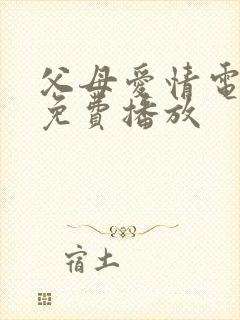 父母愛情電
免費播放
宿土